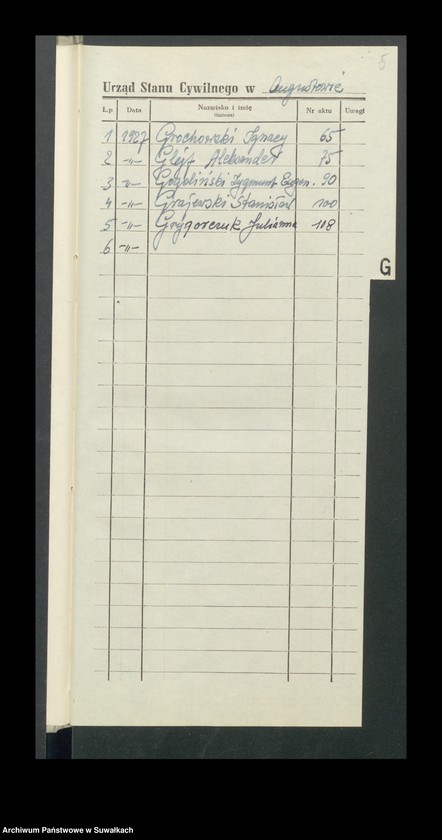 5
Urząd Stanu Cywilnego w Augustowie
L.p. Data Nazwisko i imię (Imiona) Nr aktu Uwagi
1 1927 Grochowski Ignacy 65
2 -"- Alekander 75
3 -"- Zygmunt Eugen. 90
4 -"- Grajewski Stanisław 100
5 -"- Grygorczuk Julianna 108
6 -"-
G
Archiwum Państwowe w Suwałkach